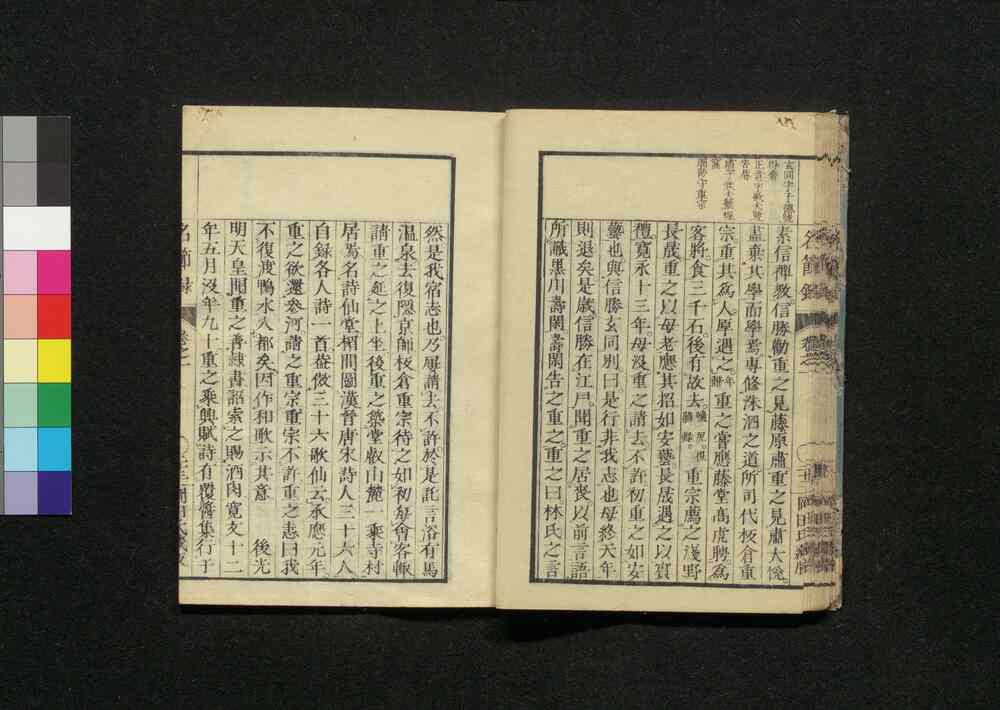 素信禪教信勝勸重之見藤原肅重之見肅大悅
盡棄其學而學焉專修洙泗之道所司代板倉重
宗重其為人厚遇之年重之嘗應藤堂高虎聘為
客將食三千石後有故去重宗薦之淺野
長晟重之以母老應其招如安藝長晟遇之以賓
禮寛永十三年母沒重之請去不許初重之如安
藝也與信勝玄同別曰是行非我志也母終天年
則退矣是歲信勝在江戶聞重之居喪以前言語
所識黑川壽閑壽閑告之重之重之曰林氏之言
然是我宿志也乃屢請去不許於是託言浴有馬
温泉去復隱京師板倉重宗待之如初每會客輙
請重之延之上坐後重之築堂叡山麓一乘寺村
居焉名詩仙堂楣間圖漢晉唐宋詩人三十六人
自錄各人詩一首葢倣三十六歌仙云承應元年
重之欲還參河請之重宗重宗不許重之恚曰我
不復渡鴨水入都矣因作和歌示其意 後光
明天皇聞重之善隸書詔索之賜酒肉寛文十二
年五月沒年九十重之乘興賦詩有覆醬集行于
名節錄
卷之一
岡田氏藏版